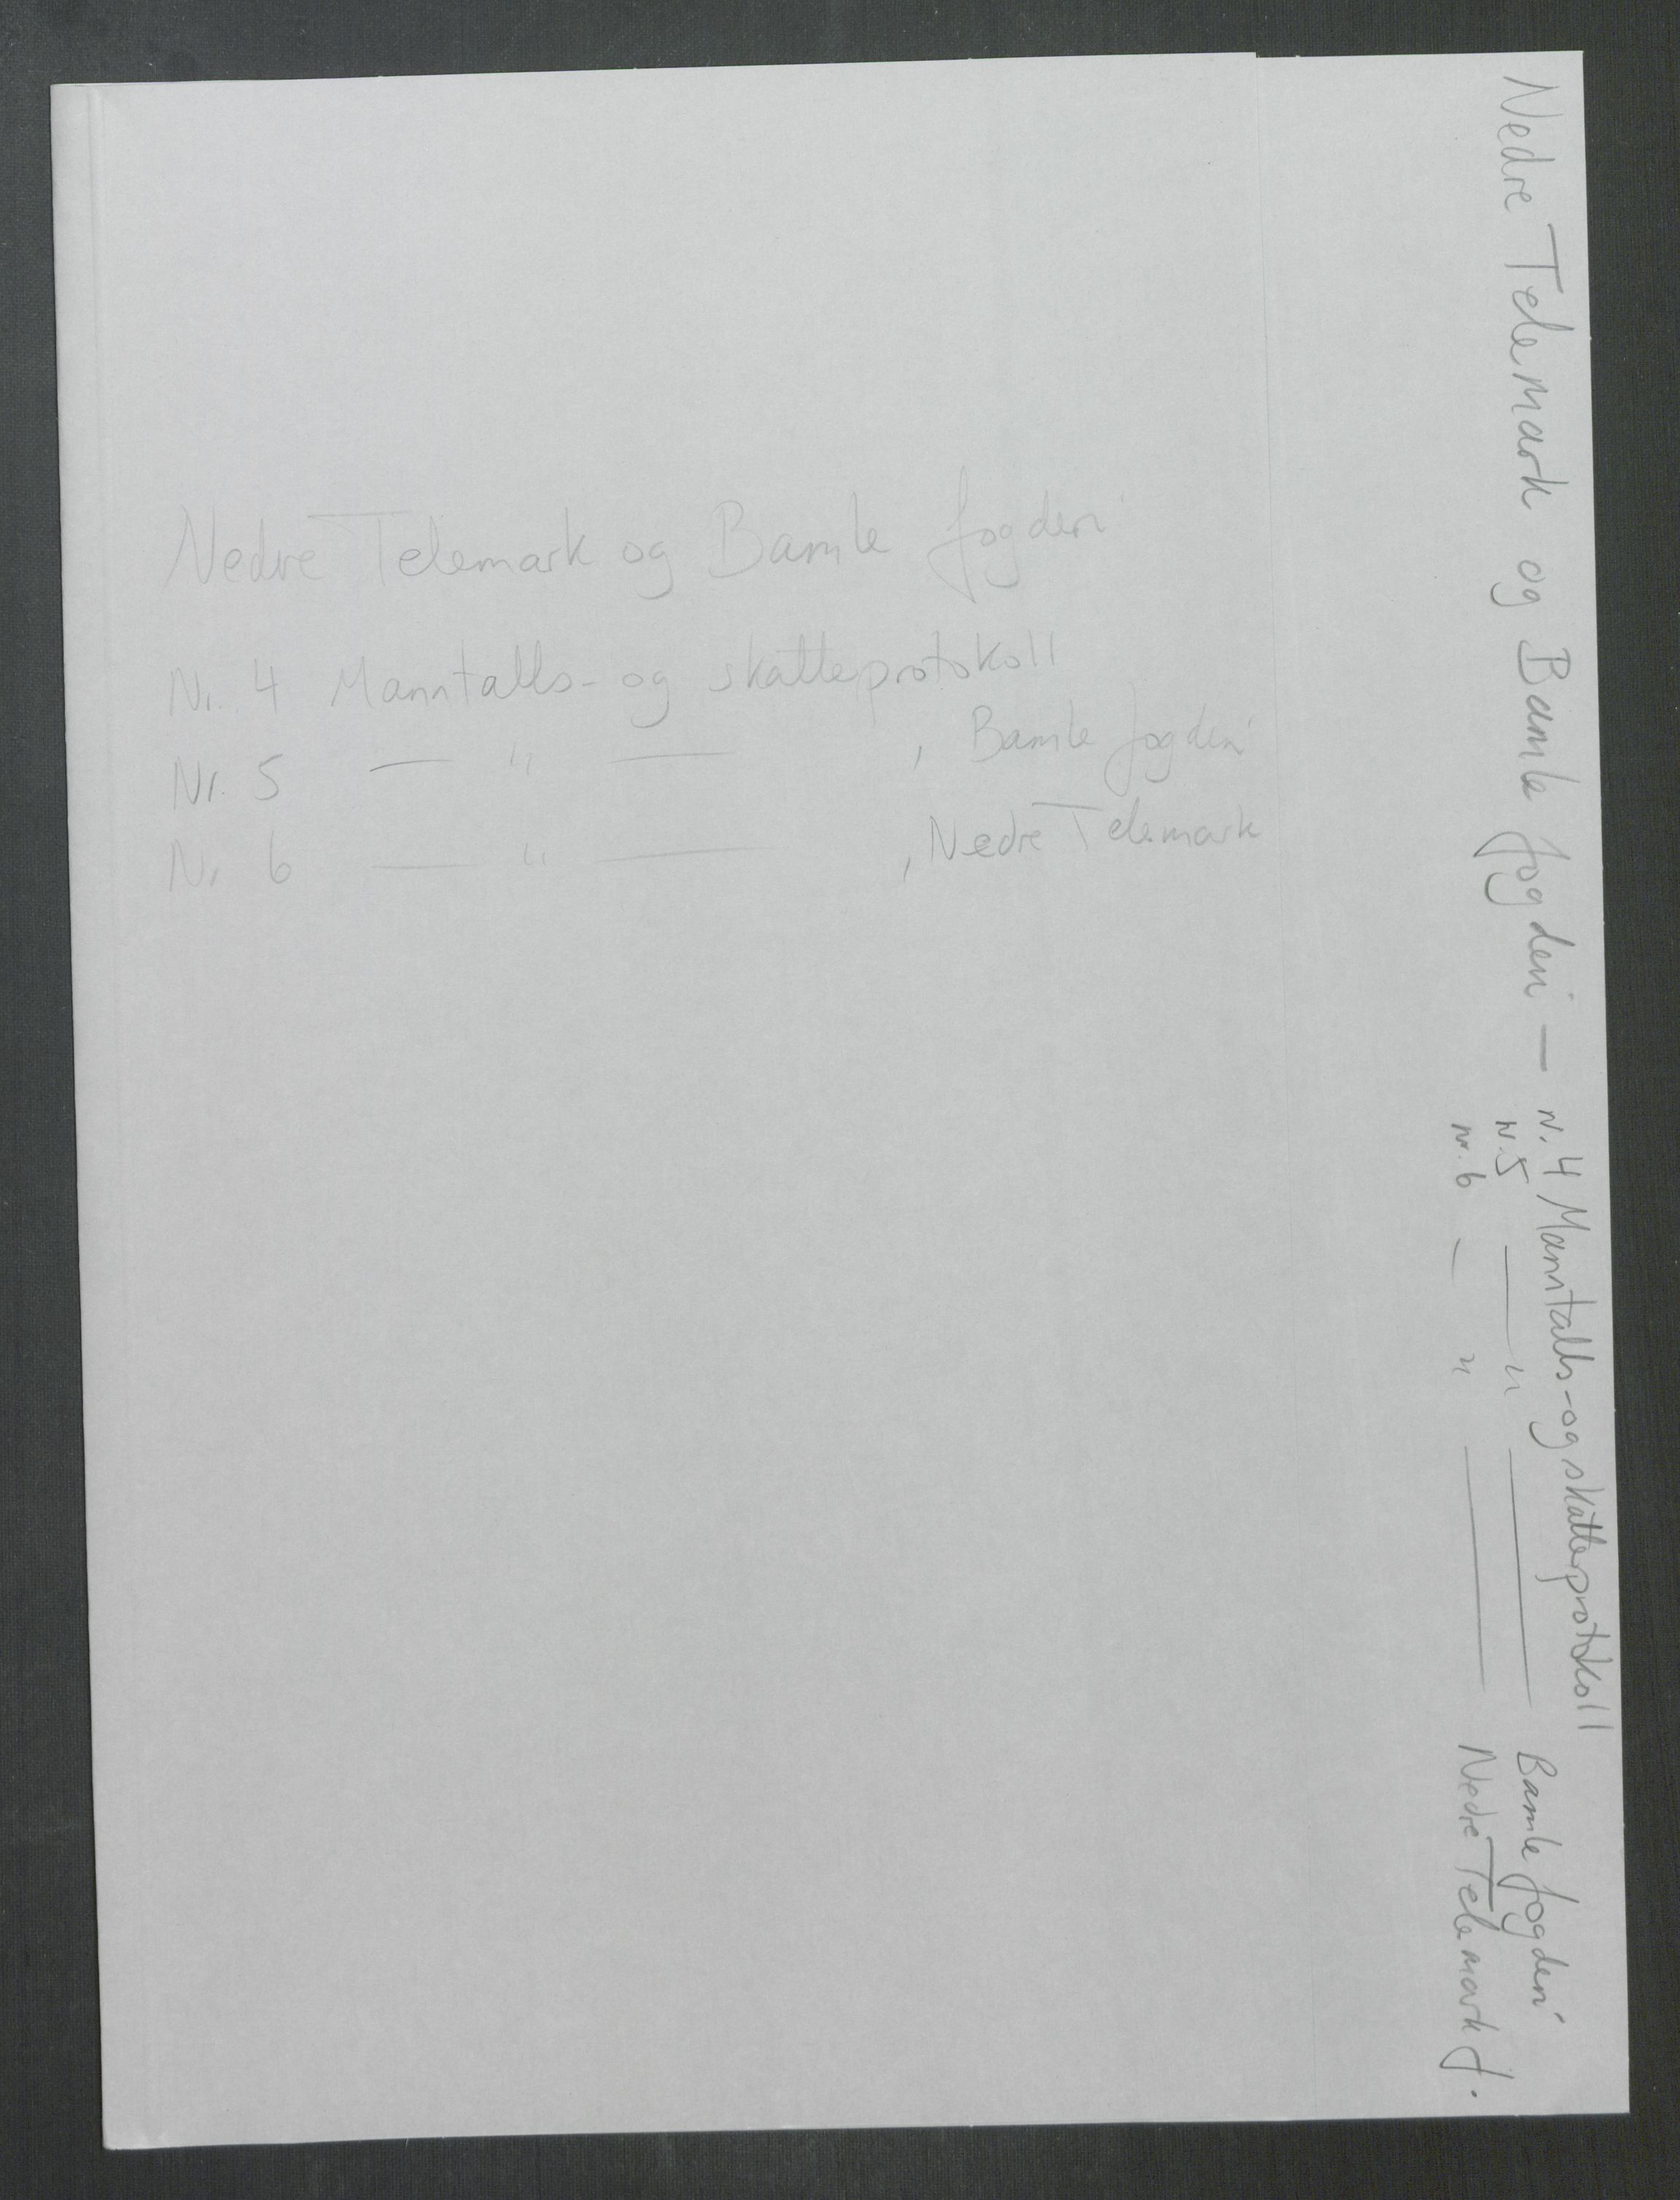 Nedre Telemark og Bamle fogderi
Nr. 4 Manntalls- og skatteprotokoll
Nr. 5 — " — , Bamle fogderi
Nr 6 — " — , Nedre Telemark
Nedre Telemark og Bamle fogderi — nr. 4 Manntalls- og skatteprotokoll
nr. 5 — " — Bamle fogderi
nr. 6 — " — Nedre Telemark f.